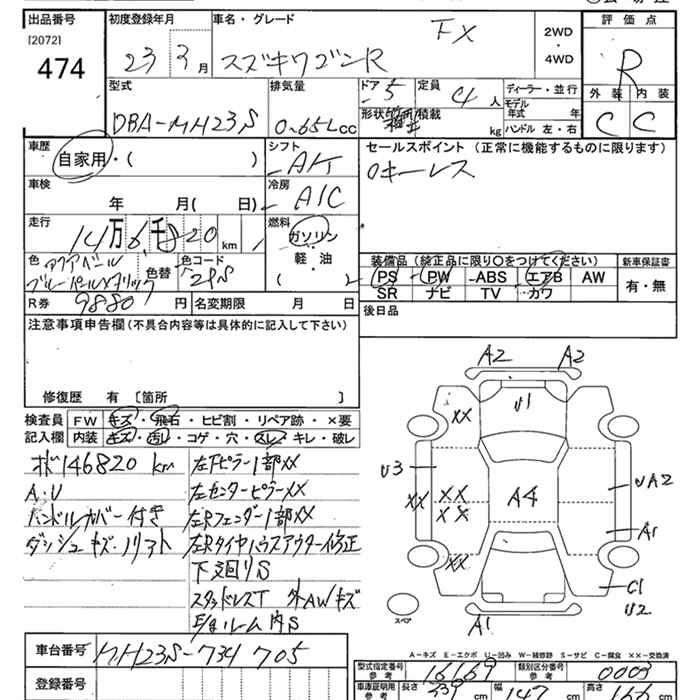 出品番号
[2072]
474
初度登録年月
23 3月
車名・グレード
スズキワゴンR FX
2WD
・
4WD
評価点
R
外装 内装
C C
型式
DBA-MH23S
排気量
0.65Lcc
ドア 5
定員 4人
形状 積載 kg
ディーラー・並行
モデル
年式 年
ハンドル 左・右
車歴
自家用・( )
シフト AT
セールスポイント (正常に機能するものに限ります)
キーレス
車検
年 月( 日)
冷房 A/C
走行
14万6千820km
燃料
ガソリン
・
軽・油
( )
色 アクアベール
ブルーパールメタリック
色替
色コード
装備品 (純正品に限り○をつけてください)
PS PW ABS エアB AW
SR ナビ TV カワ
新車保証書
有・無
R券 9880円
名変期限 月 日
後日品
注意事項申告欄 (不具合内容等は具体的に記入して下さい)
修復歴 有 〔箇所 〕
検査員 FW キズ・飛石・ヒビ割・リペア跡・×要
記入欄 内装 キズ・汚し・コゲ・穴・スレ・キレ・破レ
146820 km
A.U
ハンドルカバー付き
ダッシュキズ・リフト
左Fピラー1部XX
左センターピラーXX
左Rフェンダー1部XX
左Rタイヤハウスアウター修正
下廻りS
スタッドレスT 外AWキズ
E/gルーム内S
A2 A2
XX U1
U3 XX XX
XX A4 UA2
A1
XX
C1
U2
A1
スペア
A-キズ E-エクボ U-凹み W-補修跡 S-サビ C-腐食 XX-交換済
車台番号 MH23S-734705
型式指定番号
参考
16169
類別区分番号
参考
0003
登録番号
車庫証明用
参考
長さ 339cm
幅 147cm
高さ cm